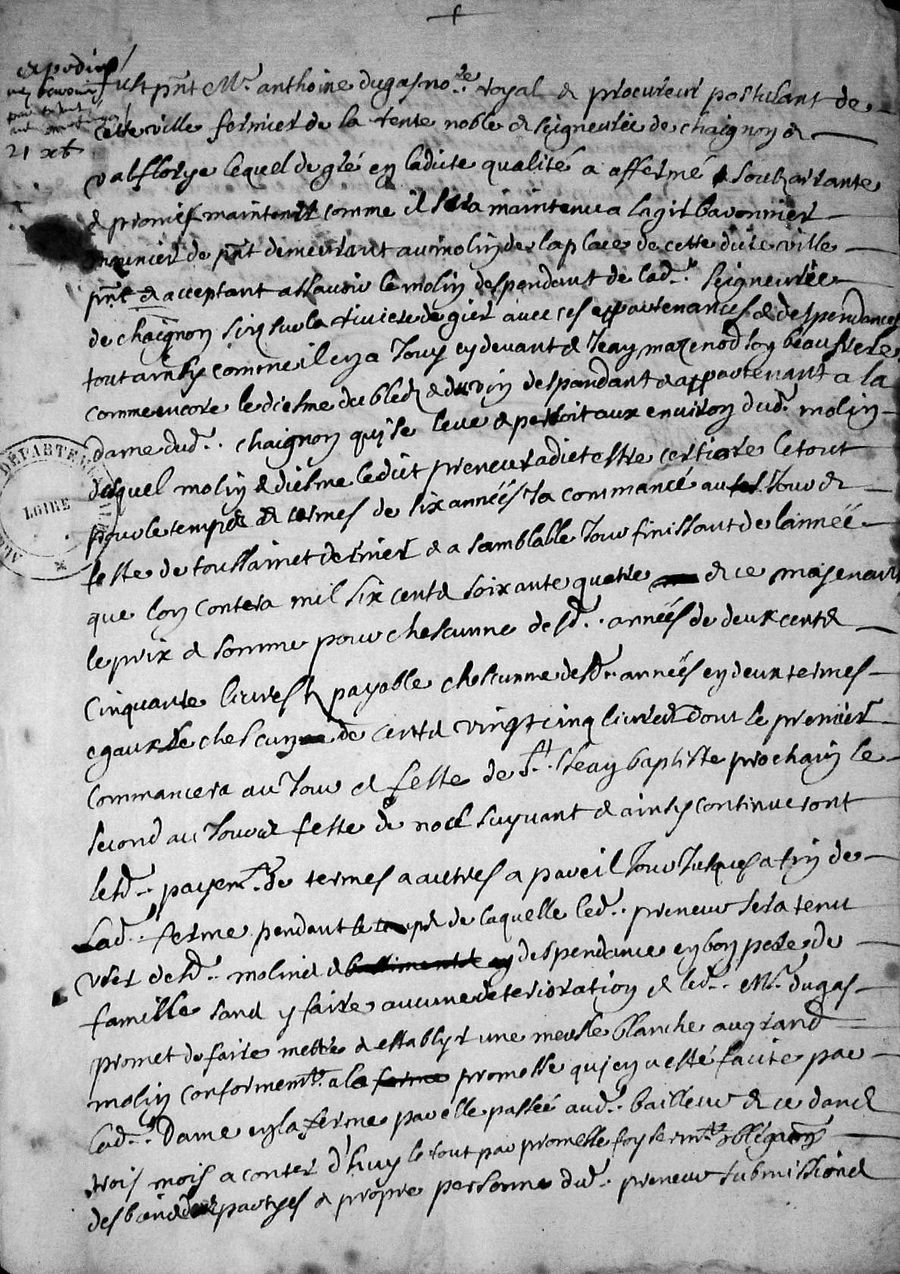 expedié
21 xb
fust pnt Mr. anthoine dugas nore. royal & procureur postulant de
cette ville fermier de la rente noble & seigneurie de chaignon &
valflorye lequel de gré en ladicte qualité a affermé
& promis maintenir comme il sera maintenu a bavonnier
munier de pnt demeurant au molin de la place de cette dicte ville
pnt & acceptant assavoir le molin despendant de lad. seigneurie
de chaignon sis sur la riviere de gier avec ces appartenances & despendances
tout ainsy comme il en a Jouy cy devant & Jean mazenod son beaufrere
comme encore le diesme du bled & du vin despandant & appartenant a la
dame dud. chaignon qui se leve & persoit aux environ dud. molin
duquel molin & diesme ledict preneur a dict estre certiore le tout
pour le temps & termes de six années Ja commancé au Jour &
feste de toussainct dernier & a samblable Jour finissant de lannée
que lon contera mil six centz soixante quatre & ce mojenant
le prix & somme pour chescunne desd. années de deux centz
Cinquante livres payable chescunne desd. années en deux termes
egaux de chescun de centz vingt cinq livres dont le premier
commancera au Jour & feste de St. Jean baptiste prochain le
second au Jour & feste de noel suyvant & ainsy continueront
lesd. payemt. de termes a autres a pareil Jour Jusques a fin de
Lad. ferme pendant le temps de laquelle led. preneur sera tenu
user desd. molin & despendance en bon pere de
famille sans y faire aucune deterioration & led. Mr. dugas
promet de faire mettre & establyr une meusle blanche au grand
molin conformemt. a la promesse qui en a esté faicte par
lad. Dame en la ferme par elle passée aud. bailleur & ce dans
trois mois a conter d'huy le tout par promesse foy sermt. obligaons
des biens partyes & propre personne dud. preneur submissions
DÉPARTEMENT
LOIRE